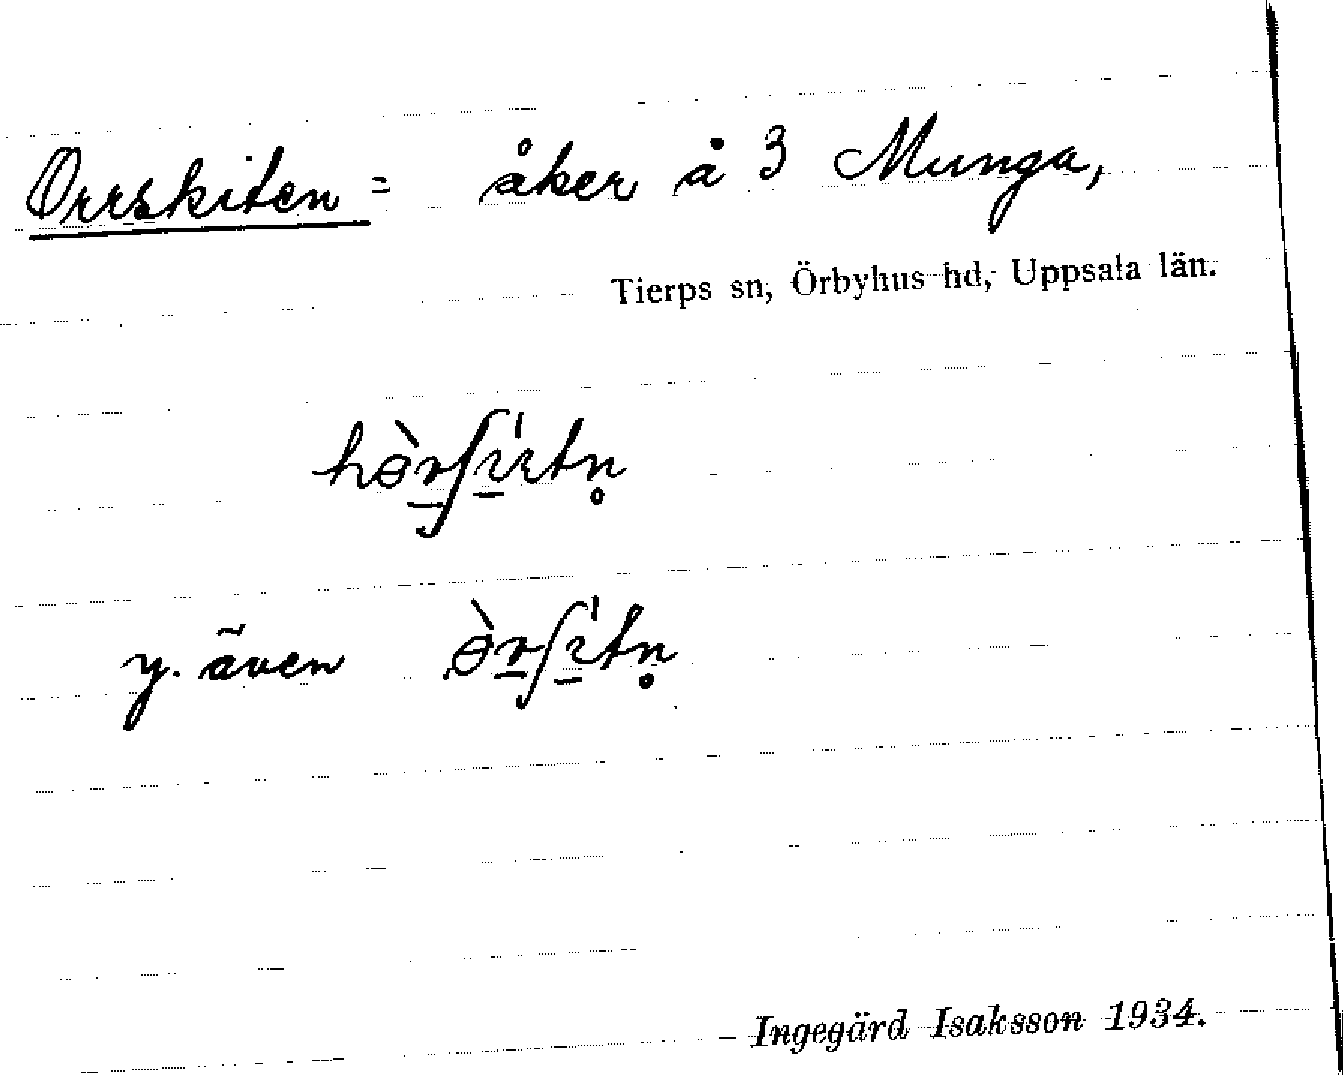 Orrskiten = åker å 3 Munga,
Tierps sn, Örbyhus hd, Uppsala län.
y. även
Ingegärd Isaksson 1934.